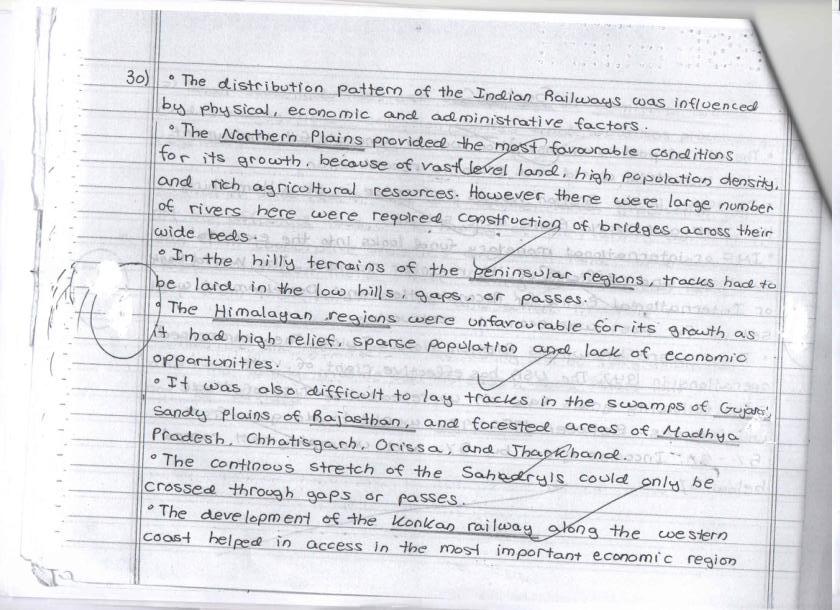 30) ° The distribution pattern of the Indian Railways was influenced
by physical, economic and administrative factors.
° The Northern Plains provided the most favourable conditions
for its growth, because of vast level land, high population density,
and rich agricultural resources. However there were large number
of rivers here were required construction of bridges across their
wide beds.
° In the hilly terrains of the peninsular regions, tracks had to
be laid in the low hills, gaps, or passes.
° The Himalayan regions were unfavourable for its growth as
it had high relief, sparse population and lack of economic
opportunities.
° It was also difficult to lay tracks in the swamps of
sandy plains of Rajasthan, and forested areas of Madhya
Pradesh, Chhatisgarh, Orissa, and Jharkhand.
° The continous stretch of the Sahadryis could only be
crossed through gaps or passes.
° The development of the Konkan railway along the western
coast helped in access in the most important economic region